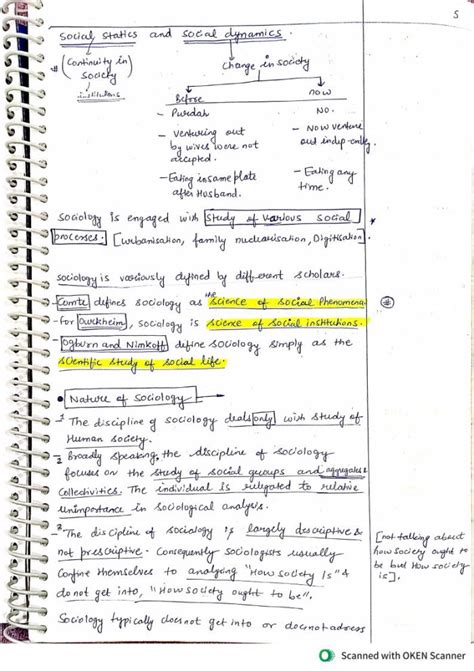 5
social statics and social dynamics.
# (Continuity in society)
institutions
Change in society
Before
now
- Purdah
NO.
- Venturing out by wives were not accepted.
- NOW venture out indep-ently
- Eating in same plate after Husband.
- Eating any time.
sociology is engaged with study of various social
processes. [urbanisation, family nuclearisation, Digitisation]
sociology is variously defined by different scholars.
- Comte defines sociology as the science of social Phenomena
- for Durkheim, sociology is science of social institutions.
- Ogburn and Nimkoff define sociology simply as the
scientific study of social life.
• Nature of Sociology
1 The discipline of sociology deals only with study of
Human society.
2 Broadly speaking, the discipline of sociology
focuses on the study of social groups and aggregates &
Collectivities. The individual is relegated to relative
unimportance in sociological analysis.
3 The discipline of sociology is largely descriptive &
not prescriptive. Consequently sociologists usually
Confine themselves to analysing "How society Is" &
do not get into, "How society ought to be".
[not talking about
how society ought to
be but How society
is].
Sociology typically does not get into or does not address
Scanned with OKEN Scanner